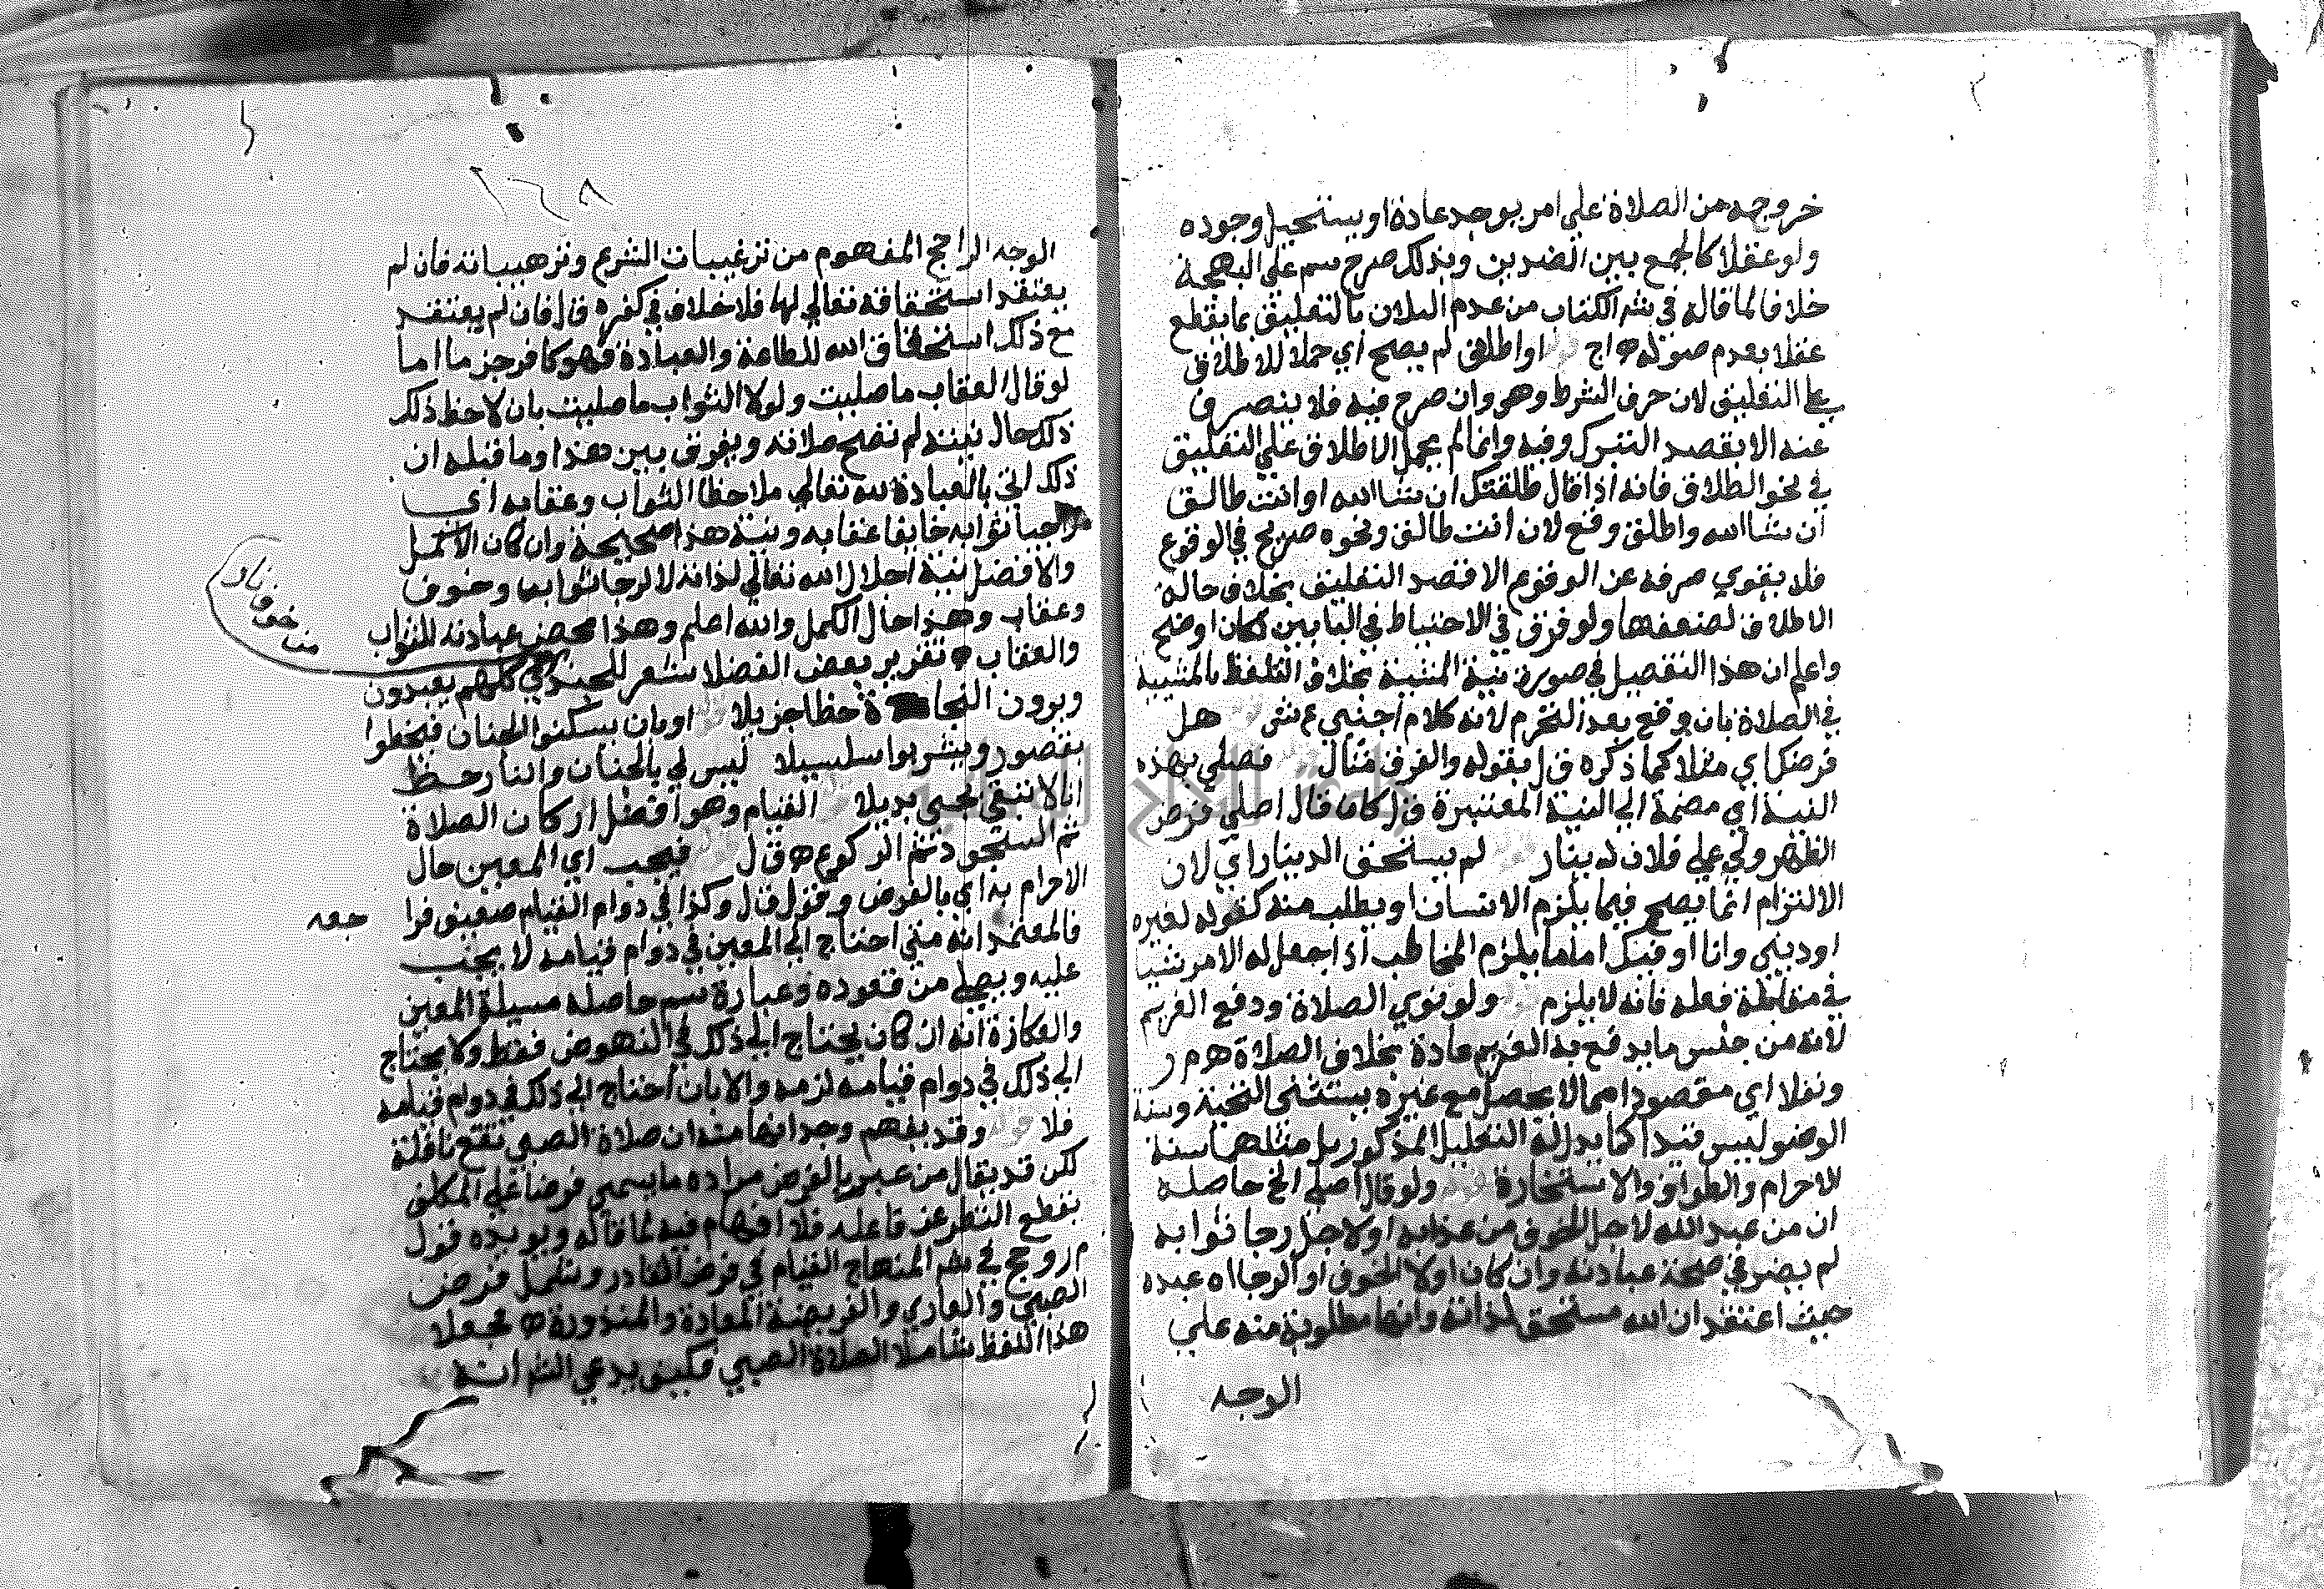 خروجه من الصلاة على امر يوجد عادة او يستحيل وجوده
ولو عقلا كالجمع بين الضدين وبذلك صرح سم على البهجة
خلافا لما قاله في شر الكتاب من عدم البطلان بالتعليق بما يقطع
عقلا بعدم حصوله اج او اطلق لم يصح اي حملا للاطلاق
على التعليق لان حرف الشرط وهو وان صرح فيه فلا ينصرف
عنه الا بقصد التبرك وفيه وانما لم يحمل الاطلاق على التعليق
في نحو الطلاق فانه اذا قال طلقتك ان شا الله او انت طالق
ان شا الله واطلق وقع لان انت طالق ونحوه صريح في الوقوع
فلا يقوي صرفه عن الوقوع الا قصد التعليق بخلاف حالة
الاطلاق لضعفها ولو فرق في الاحتياط في البابين لكان اوضح
واعلم ان هذا التفصيل في صورة نية المشية بخلاف التلفظ بالمشيية
في الصلاة بان وقع بعد التحرم لانه كلام اجنبي ع ش هل
فرضك اي مثلا كما ذكره ق ل بقوله والفرق مثال فصلي بهذه
النية اي مضمة الى النية المعتبرة ق ل كان قال اصلي فرض
الظهر ولي على فلان دينار لم يستحق الدينار اي لان
الالتزام انما يصح فيما يلزم الانسان او يطلب منه كقوله لغيره
او ديني وانا اوفيك اما ما يلزم المخاطب اذا جعل له الامر شيا
في مقابلة فعله فانه لا يلزم ولو نوى الصلاة ودفع الغريم
لانه من جنس ما يدفع به الغريم عادة بخلاف الصلاة ه م ر
ونفلا اي مقصودا مما لا يحصل مع غيره يستثنى التحية وسنة
الوضو ليس قيدا كما يدل له التعليل المذكور بل مثلها سنة
الاحرام والطواف والاستخارة ولو قال اصلي الخ حاصله
ان من عبد الله لاجل الخوف من عذابه او لاجل رجا ثوابه
لم يضر في صحة عبادته وان كان لولا الخوف او الرجا اه عبده
حيث اعتقد ان الله مستحق لذاته وانها مطلوبة منه على
الوجه
١٢٨
الوجه الراجح المفهوم من ترغيبات الشرع وترهيباته فان لم
يعتقد استحقاقه تعالى لها فلا خلاف في كفره ق ل فان لم يعتقد
مع ذلك استحقاق الله للطاعة والعبادة فهو كافر جزما اما
لو قال العقاب ما صليت ولولا الثواب ما صليت بان لاحظ ذلك
ذلك حال نيته لم تصح صلاته ويفرق بين هذا وما قبله ان
ذلك اتى بالعبادة لله تعالى ملاحظا الثواب وعقابه اي
راجيا ثوابه خايفا عقابه ونية هذا صحيحة وان كان الاكمل
والافضل نية اجلال الله تعالى لذاته لا لرجا ثوابه وخوف
وعقاب وهذا حال الكمل والله اعلم وهذا محض عبادته للثواب
والعقاب ه تقرير بعض الفضلا شعر للجنيد في كلهم يعبدون
من خوف نار
ويرون النجاة حظا جزيلا او بان يسكنوا الجنان فيحظوا
بقصور ويشربوا سلسبيلا ليس لي بالجنان والنار حظ
انا لا نبتغي لحبي بديلا القيام وهو افضل اركان الصلاة
ثم السجود ثم الركوع ه ق ل فيجب اي المعين حال
الاحرام به اي بالفرض وقول ق ل وكذا في دوام القيام ضعيف فرا جعه
فالمعتمد انه متى احتاج الى المعين في دوام قيامه لا يجب
عليه ويصلي من قعوده وعبارة سم حاصله مسيلة المعين
والعكازة انه ان كان يحتاج الى ذلك في النهوض فقط ولا يحتاج
الى ذلك في دوام قيامه لزمه والا بان احتاج الى ذلك في دوام قيامه
فلا وقد يفهم وجدانها منه ان صلاة الصبي تقع نافلة
لكن قد يقال من عبر بالفرض مراده ما يسمى فرضا على المكلف
بقطع النظر عن فاعله فلا افهام فيه لما قاله ويويده قول
م ر وحج في شر المنهاج القيام في فرض القادر وشمل فرض
الصبي والعاري والفريضة المعادة والمنذورة ه فجعلا
هذا اللفظ شاملا لصلاة الصبي فكيف يدعي الش انه